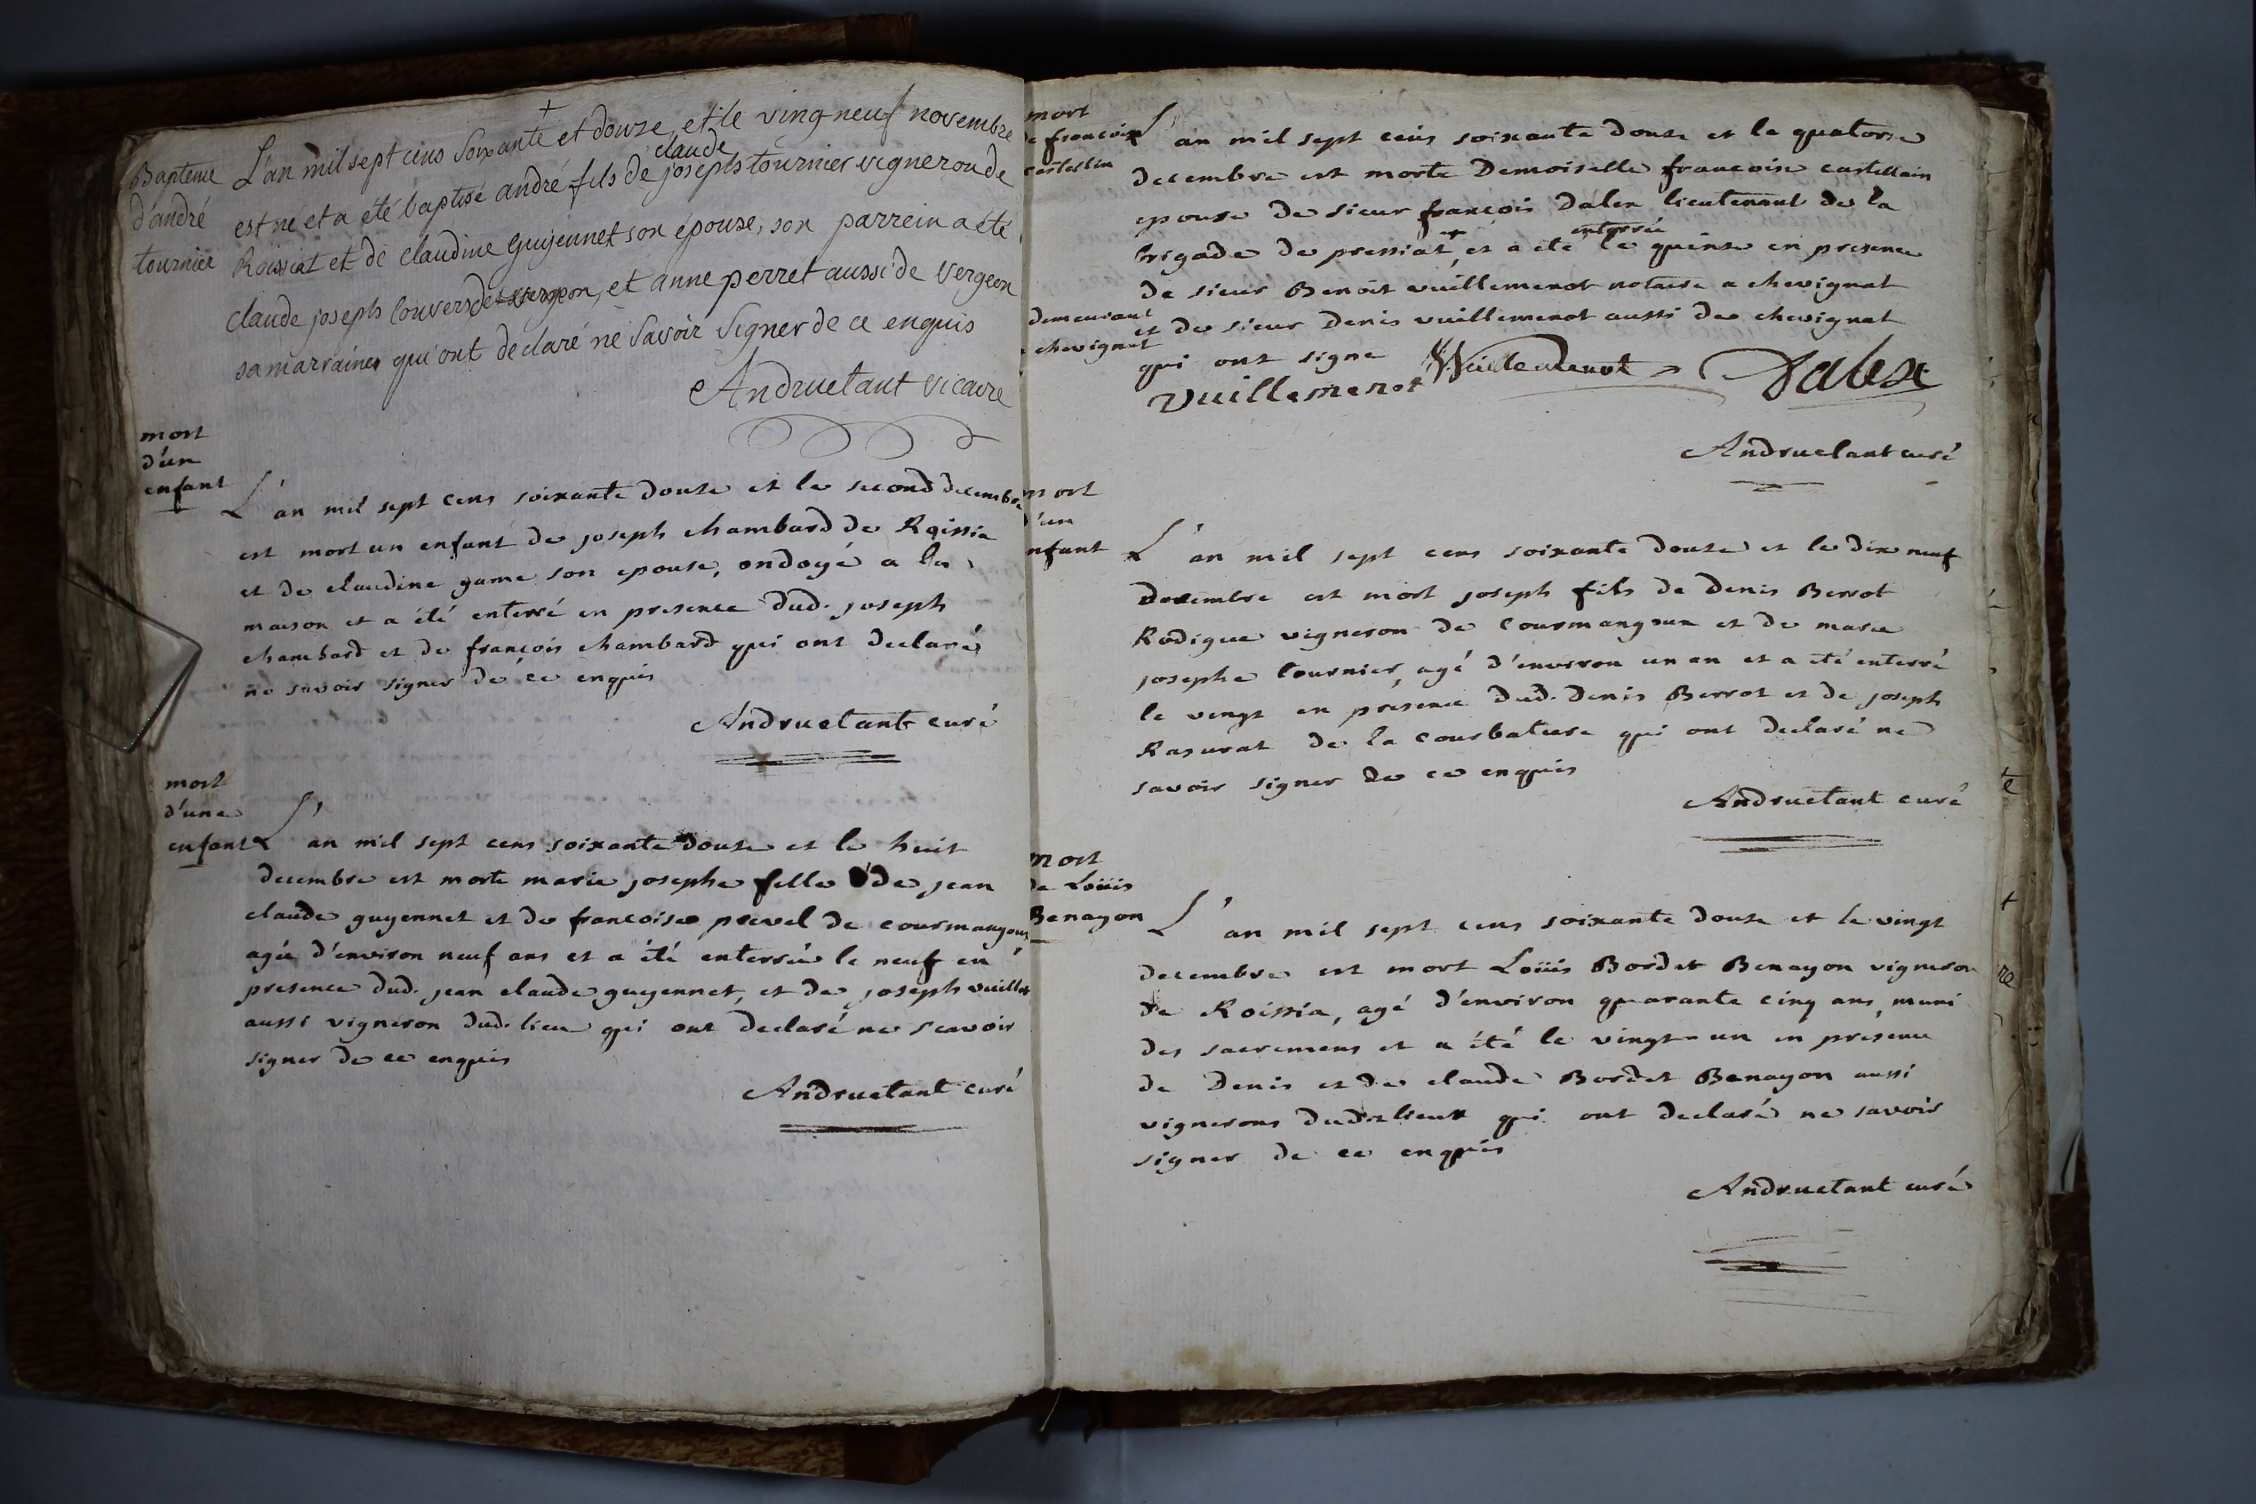 +
Bapteme
d'andré
tournier
L'an mil sept cens soixante et douze, et le ving neuf novembre
claude
est né et a été baptisé andré fils de joseph tournier vigneron de
Roissiat et de claudine guyennet son épouse, son parrein a été
claude joseph Convers de vergeon, et anne perret aussi de vergeon
sa marraine, qui ont déclaré ne savoir signer de ce enquis
Andruetant vicaire
mort
d'un
enfant
L'an mil sept cens soixante douze et le second decembre
est mort un enfant de joseph chambard de Roissia
et de claudine game son epouse, ondoyé a la
maison et a été enterré en presence dud. joseph
chambard et de françois chambard qui ont declaré
ne savoir signer de ce enquis
Andruetant curé
mort
d'une
enfant
L'an mil sept cens soixante douze et le huit
decembre est morte marie josephe fille de jean
claude guyennet et de francoise prevel de courmangoux
agée d'environ neuf ans et a été enterrée le neuf en
presence dud. jean claude guyennet, et de joseph vuillot
aussi vigneron dud. lieu qui ont declaré ne scavoir
signer de ce enquis
Andruetant curé
mort
de françoise
castellin
L'an mil sept cens soixante douze et le quatorse
decembre est morte Demoiselle françoise castellain
epouse de sieur françois Dalex lieutenant de la
enterrée
brigade de pressiat, et a été le quinse en presence
de sieur Benoit vuillemenot notaire a chevignat
demeurant
a chevignat
et de sieur Denis vuillemenot aussi de chevignat
qui ont signe
Vuillemenot Dalex
Vuillemenot
Andruetant curé
mort
d'un
enfant
L'an mil sept cens soixante douze et le dix neuf
decembre est mort joseph fils de Denis Berrot
Rodigue vigneron de Courmangoux et de marie
josephe tournier, agé d'environ un an et a été enterré
le vingt en presence dud. Denis Berrot et de joseph
Rasurat de la courbature qui ont declaré ne
savoir signer de ce enquis
Andruetant curé
mort
de Loüis
Benayon
L'an mil sept cens soixante douze et le vingt
decembre est mort Loüis Bordet Benayon vigneron
de Roissia, agé d'environ quarante cinq ans, muni
des sacremens et a été le vingt-un en presence
de Denis et de claude Bordet Benayon aussi
vignerons dudit lieux qui ont declaré ne savoir
signer de ce enquis
Andruetant curé